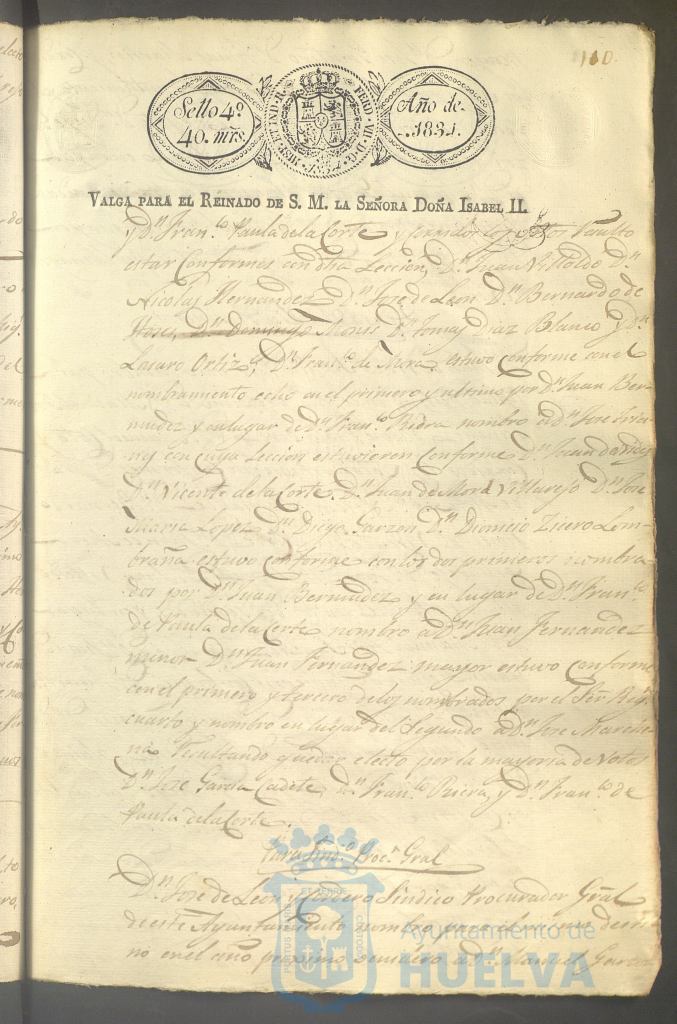 110.
Sello 4º
40. mrs.
HISP. ET IND. R. FERD. VII. D. G.
Año de
1834.
VALGA PARA EL REINADO DE S. M. LA SEÑORA DOÑA ISABEL II.
y Dn. Franco. Paula de la Corte y corridos los votos resulto
estar Conformes con dha Leccion, Dn. Juan Dn.
Nicolas Hernandez Dn. Jose de Leon Dn. Bernardo de
Dn. Domingo Mones Dn. Tomas Diaz Blanco y Dn.
Lazaro Ortiz. Dn. Franco. de Mora estuvo Conforme con el
nombramiento echo en el primero y ultimo por Dn. Juan Ber-
mudez y en lugar de Dn. Franco. nombro a Dn. Jose
con cuya Leccion estuvieron Conforme Dn. Juan de
Dn. Vicente de la Corte. Dn. Juan de Mora Villarejo Dn. Jose
Maria Lopez Dn. Diego Garzon. Dn. Dionicio Lom-
braña estuvo conforme con los dos primeros nombra-
dos por Dn. Juan Bermudez y en lugar de Dn. Franco.
de Paula de la Corte nombro a Dn. Juan Fernandez
menor Dn. Juan Fernandez mayor estuvo Conforme
con el primero y tercero de los nombrados por el Sor.
cuarto y nombro en lugar del Segundo a Dn. Jose Marche-
na Resultando quedar electo por la mayoria de Votos
Dn. Jose Garcia Cadete, Dn. Franco. Riera, y Dn. Franco. de
Paula de la Corte.
Para Sindo. Procr. Gral
Dn. Jose de Leon y Cordero Sindico Procurador Gral
de este Ayuntamiento nombro para el mismo desti-
no en el año proximo venidero a Dn. Manuel Garcia
Ayuntamiento de
HUELVA